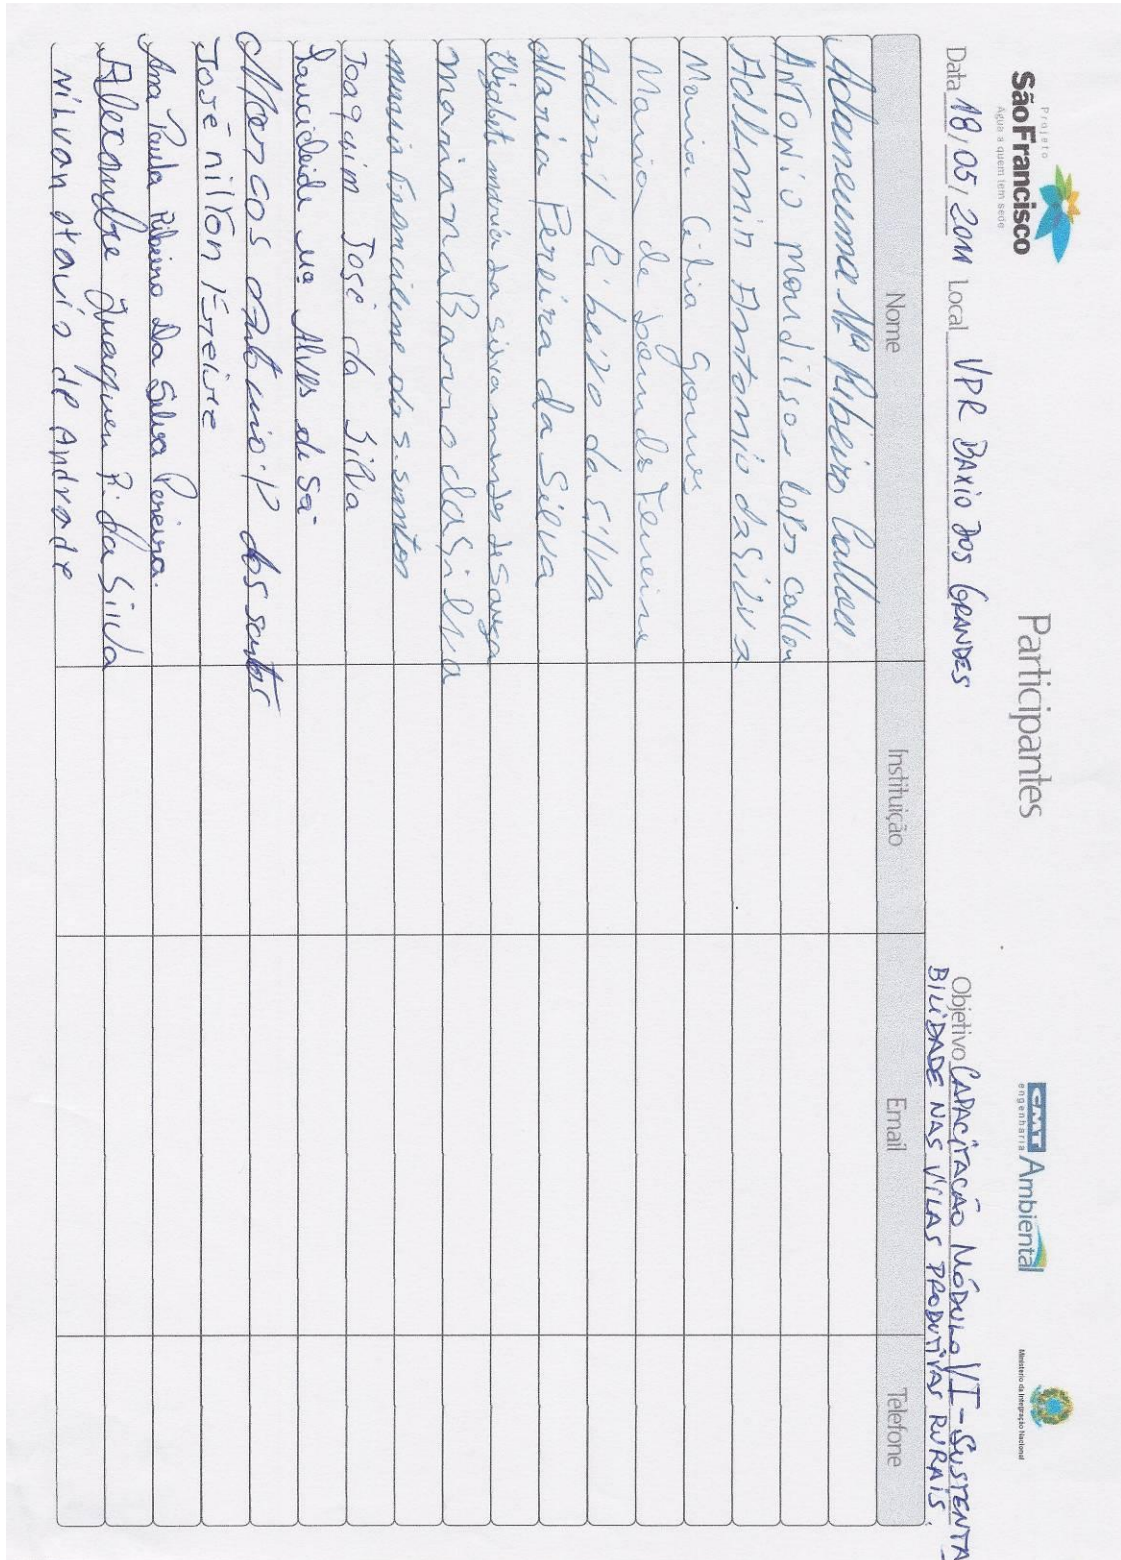 Projeto
São Francisco
Água a quem tem sede
Participantes
CMT Ambiental
engenharia
Ministério da Integração Nacional
Data 18/05/2011 Local VPR BAXIO DOS GRANDES
Objetivo CAPACITAÇÃO MÓDULO VI - SUSTENTA-
BILIDADE NAS VILAS PRODUTIVAS RURAIS.
Nome Instituição Email Telefone
Mª Ribeiro Callou
ANTONIO lopes callou
Antonio da Silva
Maria Célia Gomes
Maria de Ferreira
Ademil Ribeiro da Silva
Maria Pereira da Silva
Elizabete maria da silva mendes de Souza
mariana Barro da Silva
Francilene da s. santos
Joaquim José da Silva
Mª Alves de Sá
Marcos Antonio P dos santos
José nilton Freire
Ana Paula Ribeiro Da Silva Pereira.
R. da Silva
Nilvan otavio de Andrade